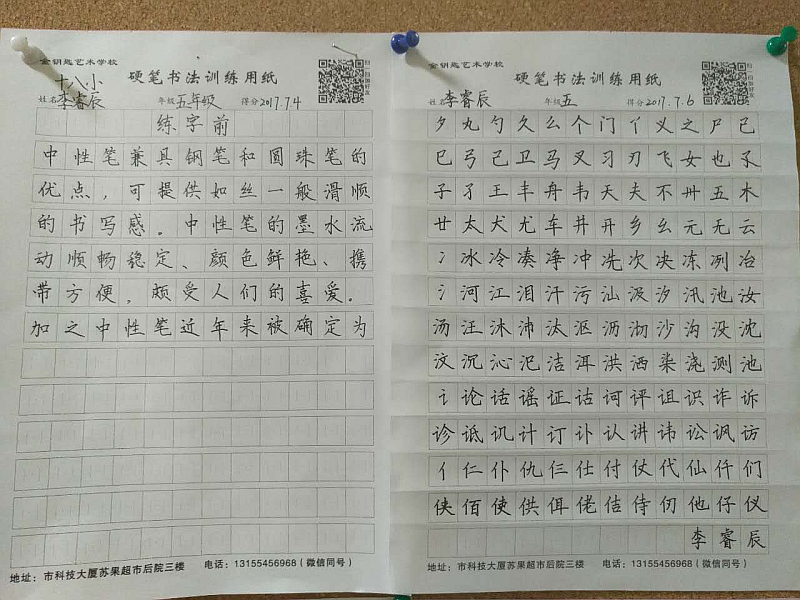 金钥匙艺术学校
硬笔书法训练用纸
十八小
姓名 李睿辰 年级 五年级 得分 2017.7.4
练字前
中性笔兼具钢笔和圆珠笔的
优点，可提供如丝一般滑顺
的书写感。中性笔的墨水流
动顺畅稳定、颜色鲜艳、携
带方便，颇受人们的喜爱。
加之中性笔近年来被确定为
地址：市科技大厦苏果超市后院三楼 电话：13155456968（微信同号）
金钥匙艺术学校
硬笔书法训练用纸
姓名 李睿辰 年级 五 得分 2017.7.6
夕丸勺久么个门丫义之尸己
巳弓己卫马叉习刃飞女也孓
子孑王丰舟韦天夫不卅五木
廿太犬尤车井开乡幺元无云
冫冰冷凑净冲冼次决冻冽冶
氵河江泪汗污汕汲汐汛池汝
汤汪沐沛汰沤沥沏沙沟没沈
汶沉沁汜洁洱洪洒柒浇测池
讠论话谣证诂诃评诅识诈诉
诊诋讥计订讣认讲讳讼讽访
亻仁仆仇仨仕付仗代仙仟们
侠佰使供佴佬佶侍仞他仔仪
李睿辰
地址：市科技大厦苏果超市后院三楼 电话：13155456968（微信同号）